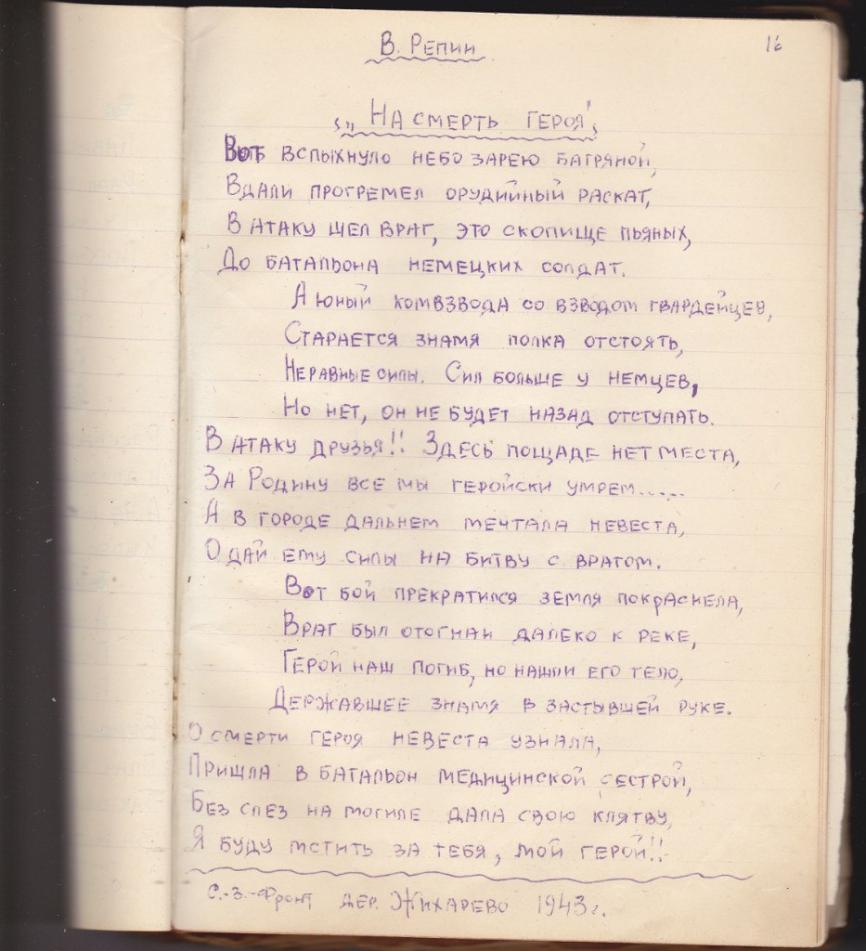 В. Репин
16
„На смерть героя"
Вот вспыхнуло небо зарею багряной,
Вдали прогремел орудийный раскат,
В атаку шел враг, это скопище пьяных,
До батальона немецких солдат.
А юный комвзвода со взводом гвардейцев,
Старается знамя полка отстоять,
Неравные силы. Сил больше у немцев,
Но нет, он не будет назад отступать.
В атаку друзья!! Здесь пощаде нет места,
За Родину все мы геройски умрем.....
А в городе дальнем мечтала невеста,
О дай ему силы на битву с врагом.
Вот бой прекратился земля покраснела,
Враг был отогнан далеко к реке,
Герой наш погиб, но нашли его тело,
Державшее знамя в застывшей руке.
О смерти героя невеста узнала,
Пришла в батальон медицинской сестрой,
Без слез на могиле дала свою клятву,
Я буду мстить за тебя, мой герой!!
С.-З.-Фронт дер. Жихарево 1943 г.